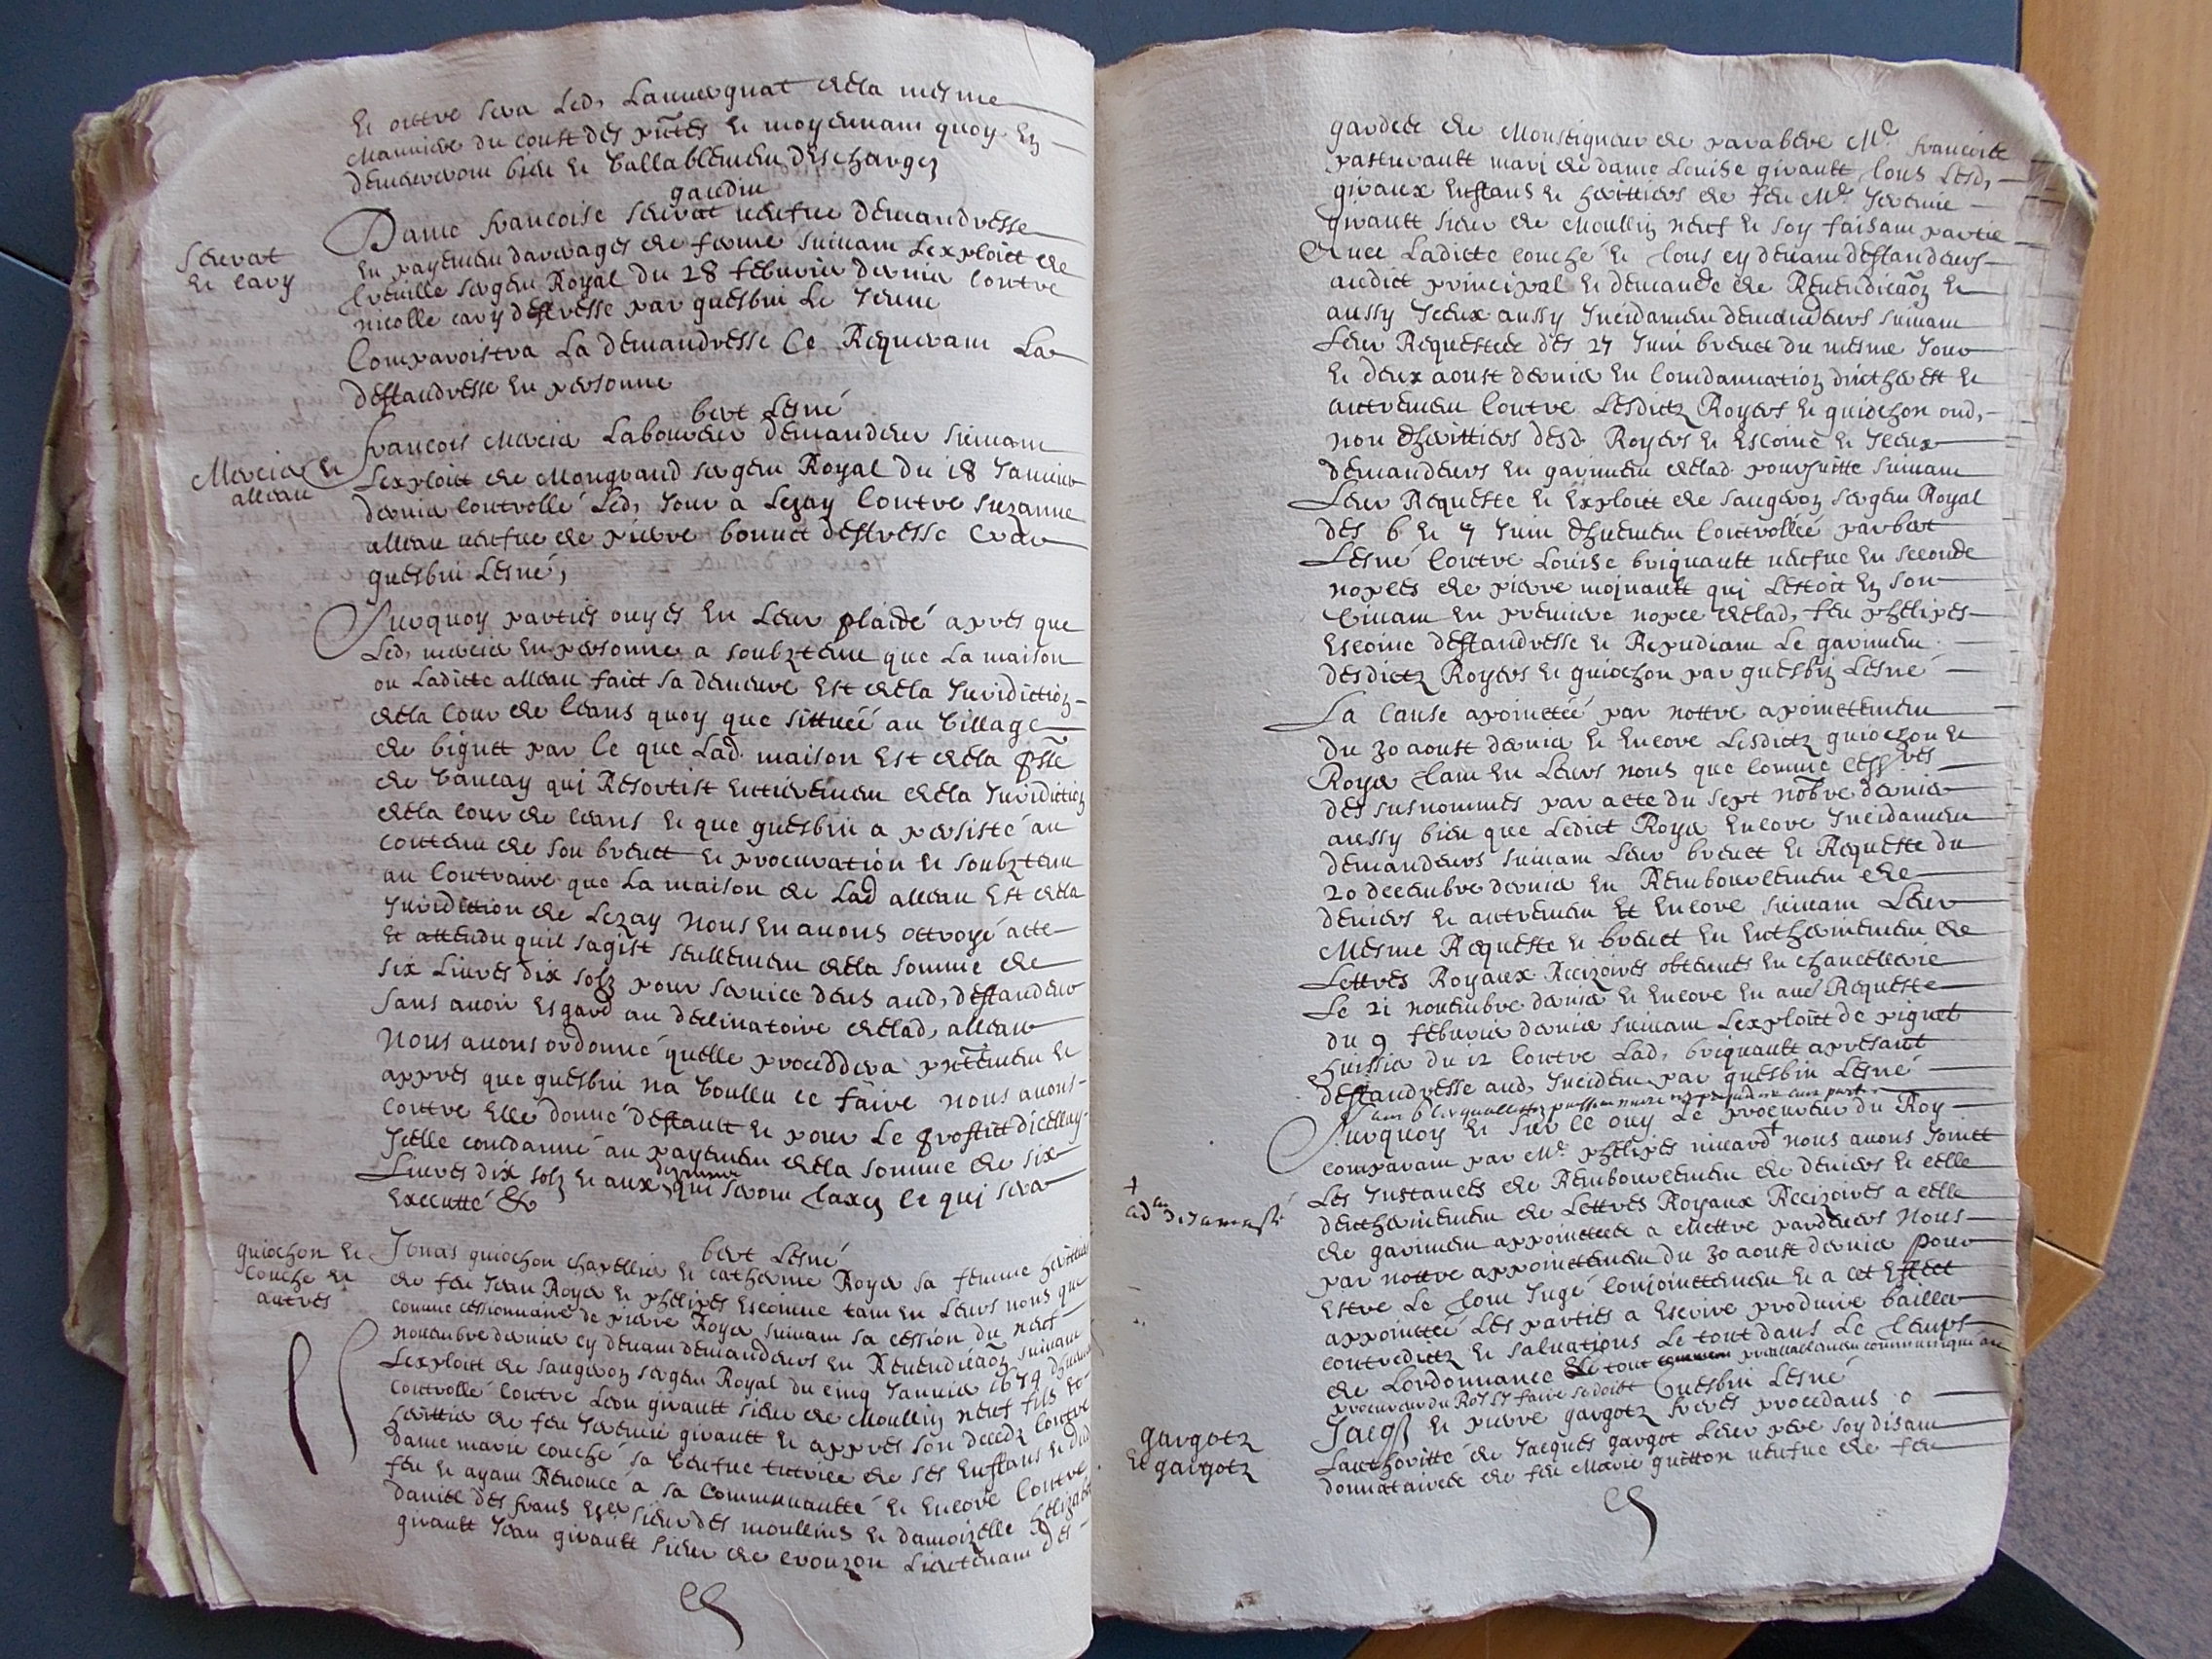 Et outtre sera Led, Lauuergnat de la mesme
Manniere du coust des pntes Et moyennant quoy Ilz
demeureront bien Et Vallablement deschargez
gaudin
Seuvat
Et cavy
Dame francoise Seuvat veufue demandresse
En payement darrerages de ferme suiuant Lexploict de
sergent Royal du 28 febvrier dernier Contre
nicolle cavy deffresse par guesbin Le Jeune
Comparoistra La demandresse Ce Requerant La
deffandresse En personne
bert Lesné
Mercier Et
alleau
francois Mercier Laboureur demandeur suiuant
Lexploict de Mongrand sergent Royal du 18 Janvier
dernier Controllé Led, Jour a Lezay Contre Suzanne
alleau veufue de pierre bonnet deffresse Et par
guesbin Lesné,
Surquoy parties ouyes En Leur plaidé apres que
Led, mercier En personne a soubztenu que La maison
ou Laditte alleau faict sa demeure Est de la Juridiction
de la Cour de ceans quoy que sittuée au Village
de bignet par Ce que Lad. maison Est de la psse
de Vancay qui Resortist Entierement de la Juridiction
de la Cour de ceans Et que guesbin a persisté au
Contenu de son breuet Et procuration Et soubztenu
au Contraire que La maison de Lad alleau Est de la
Juridition de Lezay Nous En auons ottroyé acte
Et attendu quil sagist seullement de la somme de
six Liures dix solz pour seruice deus aud, deffandeur
sans auoir Esgard au declinatoire de lad, alleau
Nous auons ordonné quelle proceddera pntement Et
appres que guesbin na Voullu ce faire nous auons
Contre Elle donné deffault Et pour Le proffict dicelluy
Jcelle condanné au payement de la somme de six
Liures dix solz Et aux despans qui seront Taxez ce qui sera
Executté &c
bert Lesné
guiochon Et
Couche Et
autres
Jonas guiochon chapellier Et Catherine Royer sa femme herittiers
de feu Jean Royer Et phelipes Escoinne tant En Leurs noms que
comme cessionnaire de pierre Royer suiuant sa cession du neuf
nouembre dernier cy deuant demandeurs En Reuendicaon suiuant
Lexploict de saugeron sergent Royal du cinq Janvier 1679
Controllé Contre Leon girault sieur de Moullin neuf fils Et
herittier de feu Jeremie girault Et appres son decedz Contre
dame marie couché sa Veufue tutrice de ses Enffans Et dud
feu Et ayant Renoncé a sa Communautté Et Encore Contre
daniel des frans Esr sieur des moullins Et damoizelle Elizabet
girault Jean girault sieur de crouzon Lieutenant des
gardes de Monseigneur de parabere Me. francois
pasturault mari de dame Louise girault, tous Lesd,
giraux Enffans Et herittiers de feu Me Jeremie
girault sieur de Moullin neuf Et soy faisant partie
Auec Laditte couché Et tous cy deuant deffandeurs
audict principal Et demande de Reuendicaon Et
aussy Jceux aussy Jncidament demandeurs suiuant
Leur Requestee des 27 Juin breuet du mesme Jour
Et deux aoust dernier En Condannation dinthérest Et
autrement Contre Lesdictz Royers Et guiochon oud,
non dherittiers desd. Royers Et Escoinne Et Jceux
demandeurs En gariment de lad. poursuitte suiuant
Leur Requeste Et Exploict de saugeron sergent Royal
des 6 Et 7 Juin dhuement Controllée par bert
Lesné Contre Louise briquault veufue En seconde
nopces de pierre moinault qui Lestoit En son
Viuant En premiere nopce de lad, feu phelipes
Escoinne deffandresse Et Repudiant Le gariment
desdictz Royers Et guiochon par guesbin Lesné
La Cause apointtée par nottre apointtement
du 30 aoust dernier Et Encore Lesdictz guiochon Et
Royer tant En Leurs noms que comme cess.res
des susnommes par acte du sept nobre dernier
aussy bien que Ledict Royer Encore Jncidament
demandeurs suiuant Leur breuet Et Requeste du
20 decembre dernier En Rembourcement de
deniers Et autrement Et Encore suiuant Leur
Mesme Requeste Et breuet En Entherinement de
Lettres Royaux Recizoires obtenues En chancellerie
Le 21 nouembre dernier Et Encore En autre Requeste
du 9 febvrier dernier suiuant Lexploict de pignet
huissier du 12 Contre Lad, briquault apresant
deffandresse aud, Jncident par guesbin Lesné
Surquoy Et sur ce ouy Le procureur du Roy
comparant par Me. phelipes niuard nous auons Joinct
+
Les Jnstances de Rembourcement de deniers Et celle
dentherinement de Lettres Royaux Recizoires a celle
de gariment appointtee a Mettre pardeuers Nous
par nottre appointtement du 30 aoust dernier pour
Estre Le tout Jugé Conjointtement Et a cet Effect
appointté Les parties a Escrire produire bailler
contredictz Et saluations Le tout dans Le temps
de Lordonnance Le tout prealablement communiqué au
procureur du Roy St faire se doibt
Guesbin Lesné
gargotz
Et gargotz
Jacqs Et pierre gargotz freres procedans o
Lauthoritté de Jacques gargot Leur pere soy disant
donnatairee de feu Marie guitton veufue de feu